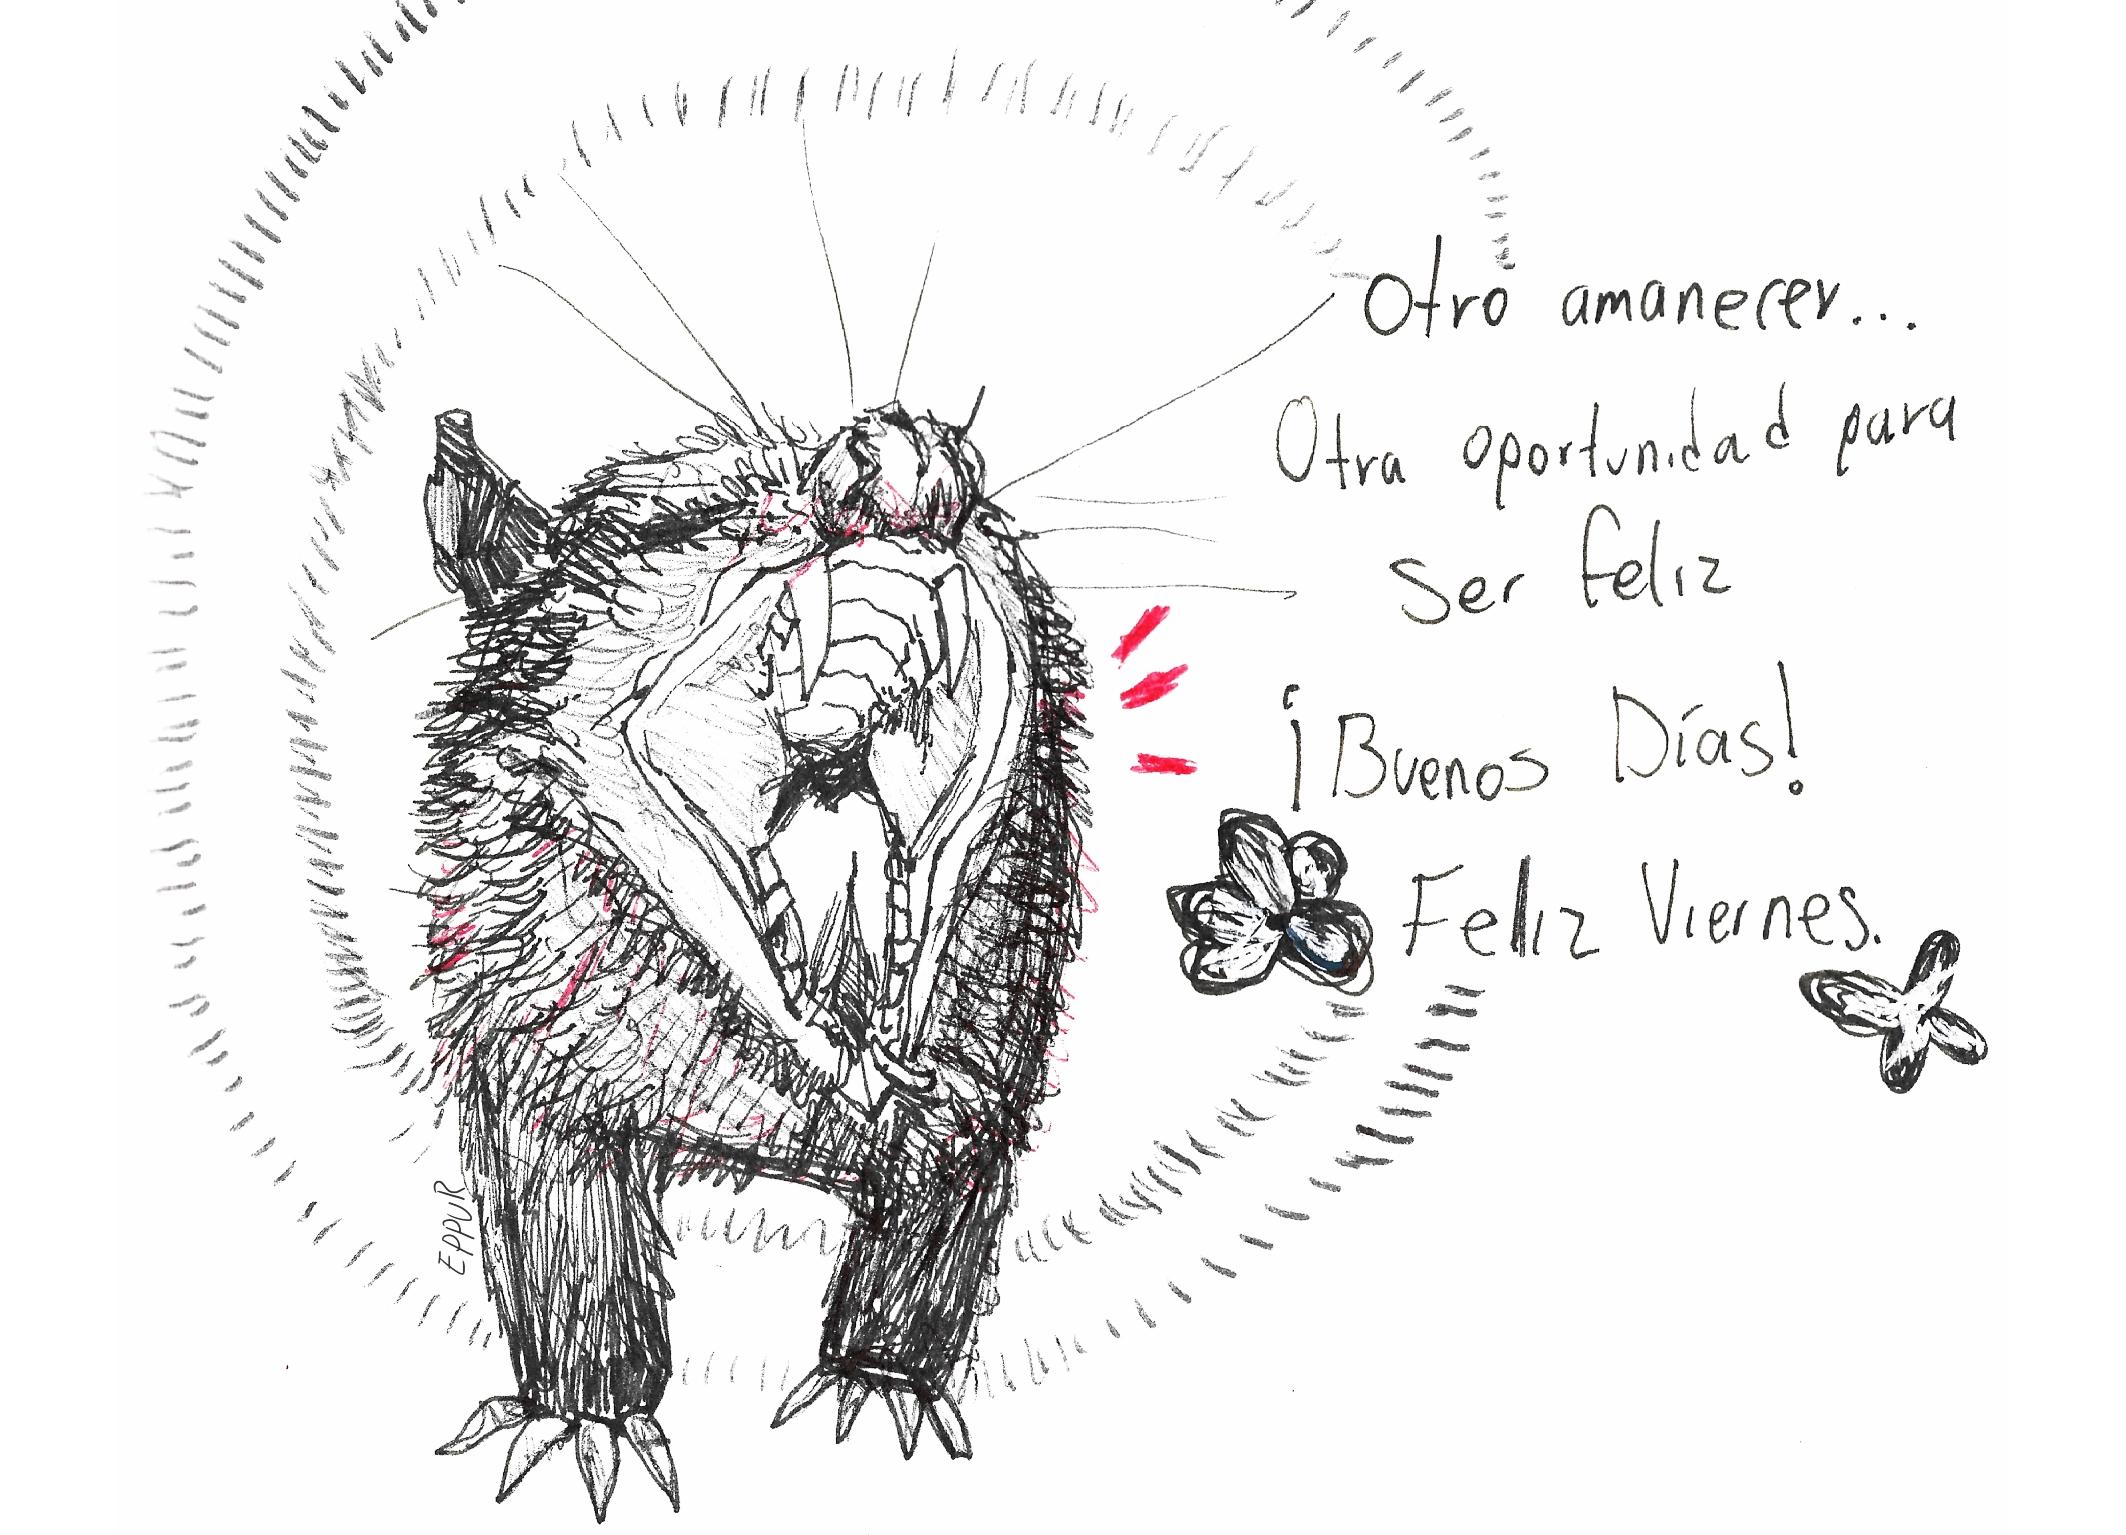 Otro amanecer...
Otra oportunidad para
ser feliz
¡Buenos Días!
Feliz Viernes.
EPPUR